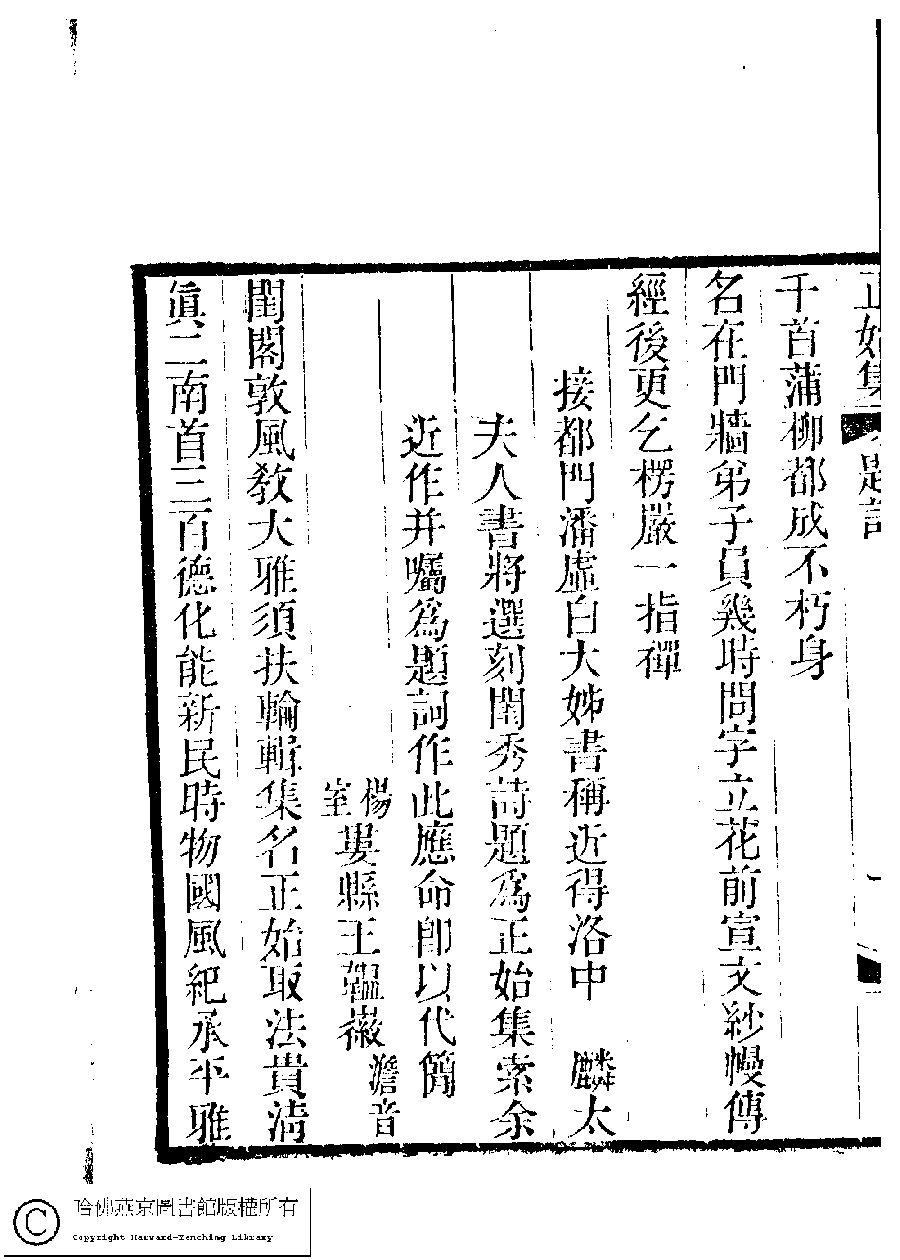 正始集 題詞 一
千首蒲柳都成不朽身
名在門牆弟子員幾時問字立花前宣文紗幔傳
經後更乞楞嚴一指禪
接都門潘虛白大姊書稱近得洛中 麟太
夫人書將選刻閨秀詩題爲正始集索余
近作并囑爲題詞作此應命卽以代簡
楊室婁縣王韞徽澹音
閨閣敦風敎大雅須扶輪輯集名正始取法貴淸
眞二南首三百德化能新民時物國風紀承平雅
哈佛燕京圖書館版權所有
Copyright Harvard-Yenching Library